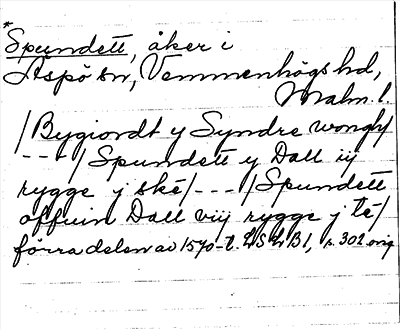 *
Spundett, åker i
Äspö sn, Vemmenhögs hd,
Malm. l.
/Bygiordt y Syndre wongh/
---/Spundett y Dall iij
rygge j ské/---/Spundett
offuin Dall viij rygge j té/
förra delen av 1570-t. LSLB1, s. 302 orig